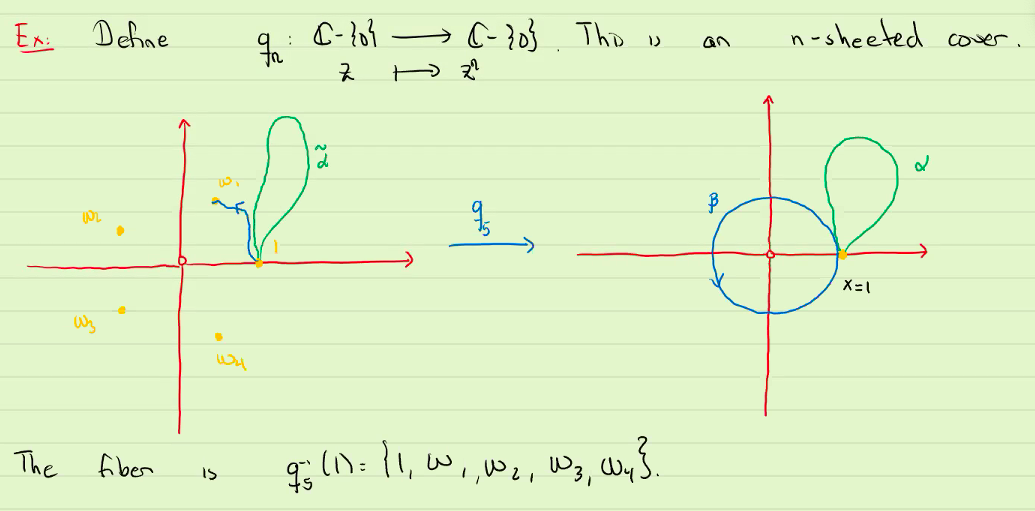 Ex: Define q_n : ℂ-{0} ⟶ ℂ-{0}. This is an n-sheeted cover.
z ⟼ z^n
α̃
α
ω₁
β
ω₂
q₅
1
x=1
ω₃
ω₄
The fiber is q₅⁻¹(1) = {1, ω₁, ω₂, ω₃, ω₄}.